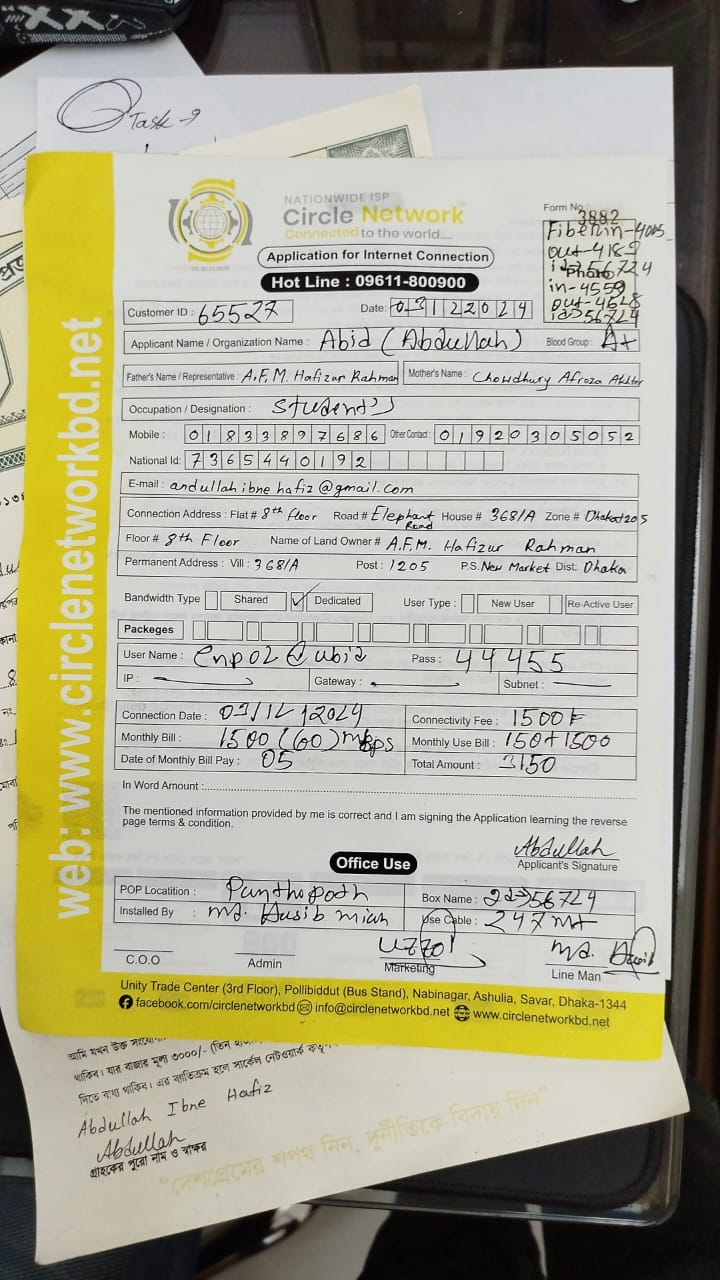 Task-9
NATIONWIDE ISP
Circle Network
Connected to the world....
Application for Internet Connection
Hot Line : 09611-800900
Form No
3882
Fiber in-4005
out-4189
Photo
id⇒56724
in-4559
out-4628
id⇒56724
Customer ID : 65527
Date: 03122024
Applicant Name / Organization Name : Abid (Abdullah) Blood Group : A+
Father's Name / Representative : A.F.M. Hafizur Rahman Mother's Name : Chowdhury Afroza Akhtar
Occupation / Designation : Student's
Mobile : 01833897686 Other Contact : 01920305052
National Id: 7365440192
E-mail : andullah ibne hafiz@gmail.com
Connection Address : Flat # 8th floor Road # Elephant Road House # 368/A Zone # Dhaka1205
Floor # 8th Floor Name of Land Owner # A.F.M. Hafizur Rahman
Permanent Address : Vill : 368/A Post : 1205 P.S. New Market Dist: Dhaka
Bandwidth Type Shared ✓ Dedicated User Type : New User Re-Active User
Packeges
User Name : cnp02@ubid Pass : 44455
IP : Gateway : Subnet :
Connection Date : 03/12/2024 Connectivity Fee : 1500৳
Monthly Bill : 1500 (60) mbps Monthly Use Bill : 150+1500
Date of Monthly Bill Pay : 05 Total Amount : 3150
In Word Amount :
The mentioned information provided by me is correct and I am signing the Application learning the reverse
page terms & condition.
Abdullah
Applicant's Signature
Office Use
POP Locatition : Panthopath Box Name : id⇒56724
Installed By : Md. Hasib miah Use Cable : 247 mt
Uzzol
Md. Hasib
C.O.O Admin Marketing Line Man
Unity Trade Center (3rd Floor), Pollibiddut (Bus Stand), Nabinagar, Ashulia, Savar, Dhaka-1344
facebook.com/circlenetworkbd info@circlenetworkbd.net www.circlenetworkbd.net
web: www.circlenetworkbd.net
আমি যখন উক্ত সংযোগ
থাকিব। যার বাজার মূল্য ৩০০০/- (তিন
দিতে বাধ্য থাকিব। এর ব্যতিক্রম হলে সার্কেল নেটওয়ার্ক
Abdullah Ibne Hafiz
Abdullah
গ্রাহকের পুরো নাম ও স্বাক্ষর
"দেশপ্রেমের শপথ নিন, দুর্নীতিকে বিদায় দিন"